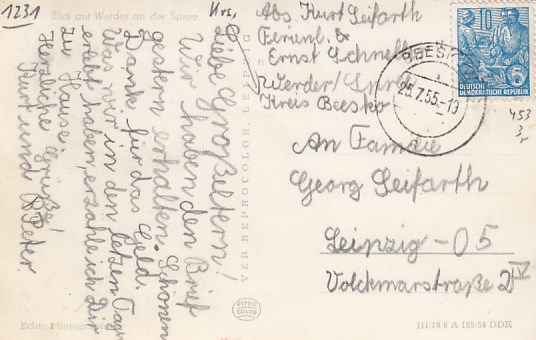 1231
Blick auf Werder an der Spree
Liebe Großeltern!
Wir haben den Brief
gestern erhalten. Schönen
Dank für das Geld.
Was wir in den letzen Tagen
erlebt haben, erzähle ich Dir
zu Hause.
Herzliche Grüße!
Kurt und Peter
VEB REPROCOLOR LEIPZIG
Abs. Kurt Seifarth
Ferienl. b
Ernst Schnell
Werder/Spree
Kreis Beeskow
BEESKOW
25.7.55.-19
10
DEUTSCHE
DEMOKRATISCHE REPUBLIK
6
453
An Familie
Georg Seifarth
Leipzig-O5
Volckmarstraße 2 IV
REPRO
COLOR
Echte Photographie
III/18/6 A 189/54 DDR